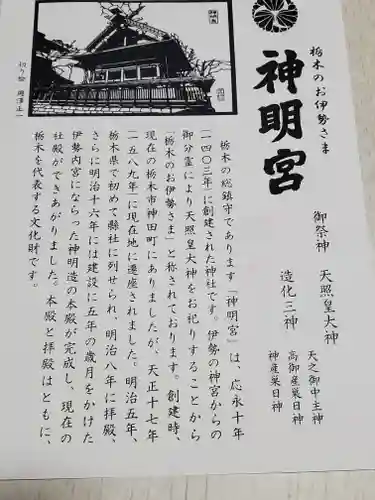 栃木のお伊勢さま
神明宮
御祭神　天照皇大神
造化三神
天之御中主神
高御産巣日神
神産巣日神
栃木の総鎮守であります「神明宮」は、応永十年
(一四〇三年)に創建された神社です。伊勢の神宮からの
御分霊により天照皇大神をお祀りすることから
「栃木のお伊勢さま」と称されております。創建時、
現在の栃木市神田町にありましたが、天正十七年
(一五八九年)に現在地に遷座されました。明治五年、
栃木県で初めて縣社に列せられ、明治八年に拝殿、
さらに明治十六年には建設に五年の歳月をかけた
伊勢内宮にならった神明造の本殿が完成し、現在の
社殿ができあがりました。本殿と拝殿はともに、
栃木を代表する文化財です。
切り絵